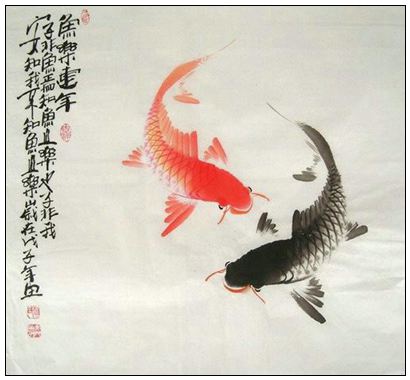 魚樂連年
子非魚焉知魚且樂也子非我
安知我不知魚且樂歲在戊子年画